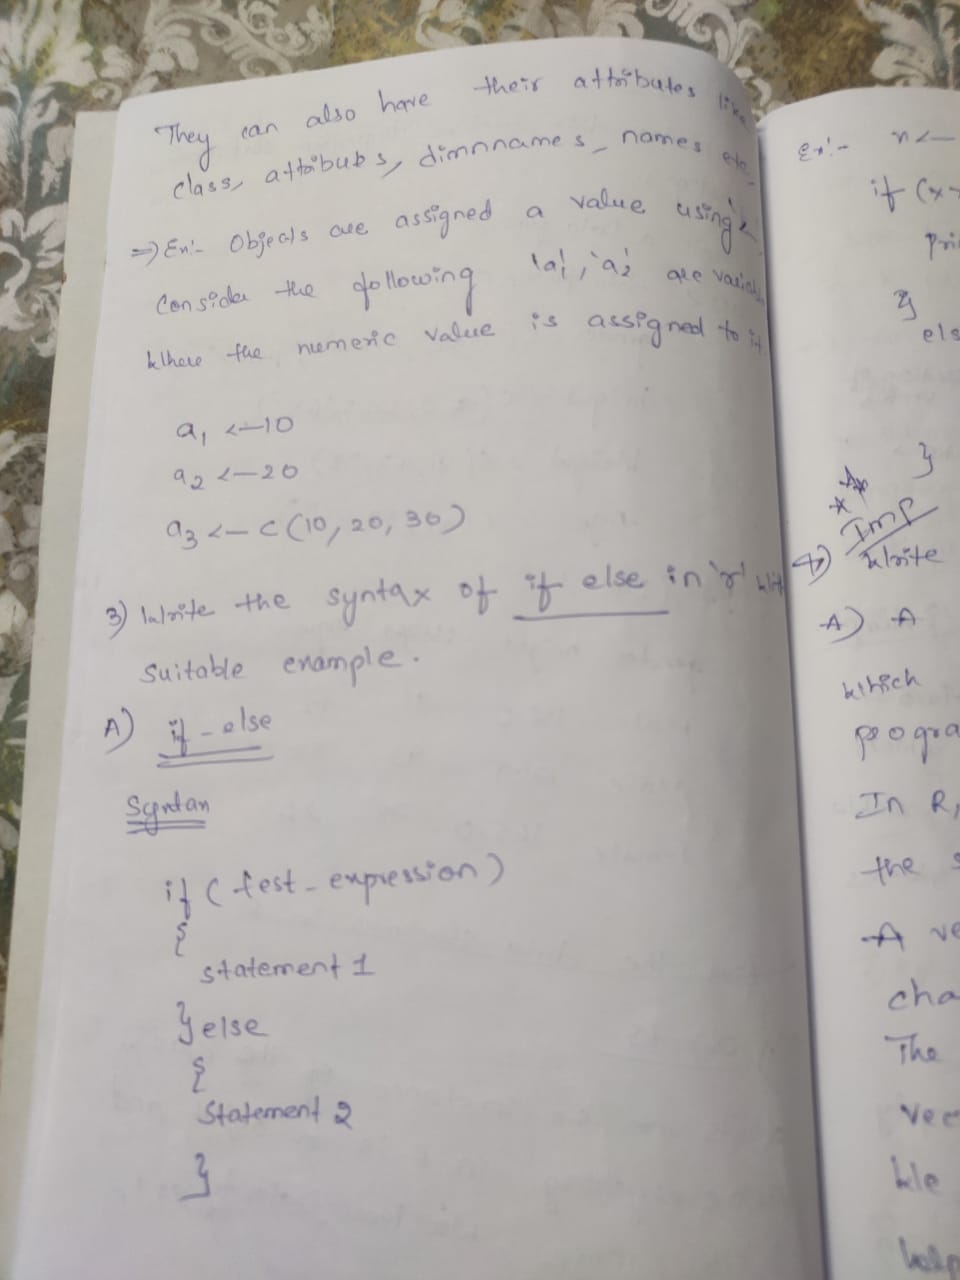 They can also have their attributes like
class, attributs, dimnnames, names etc.
=> Ex:- Objects are assigned a value using <-
Consider the following 'a1', 'a2' are
Where the numeric value is assigned to it
a1 <- 10
a2 <- 20
a3 <- c (10, 20, 30)
3) Write the syntax of if else in 'r' with
suitable example.
A) if - else
Syntax
if ( test - expression )
{
statement 1
} else
{
Statement 2
}
Ex:- x <-
if (x
}
els
}
Imp
4) Write
A) A
which
In R,
the
A ve
cha
The
Vec